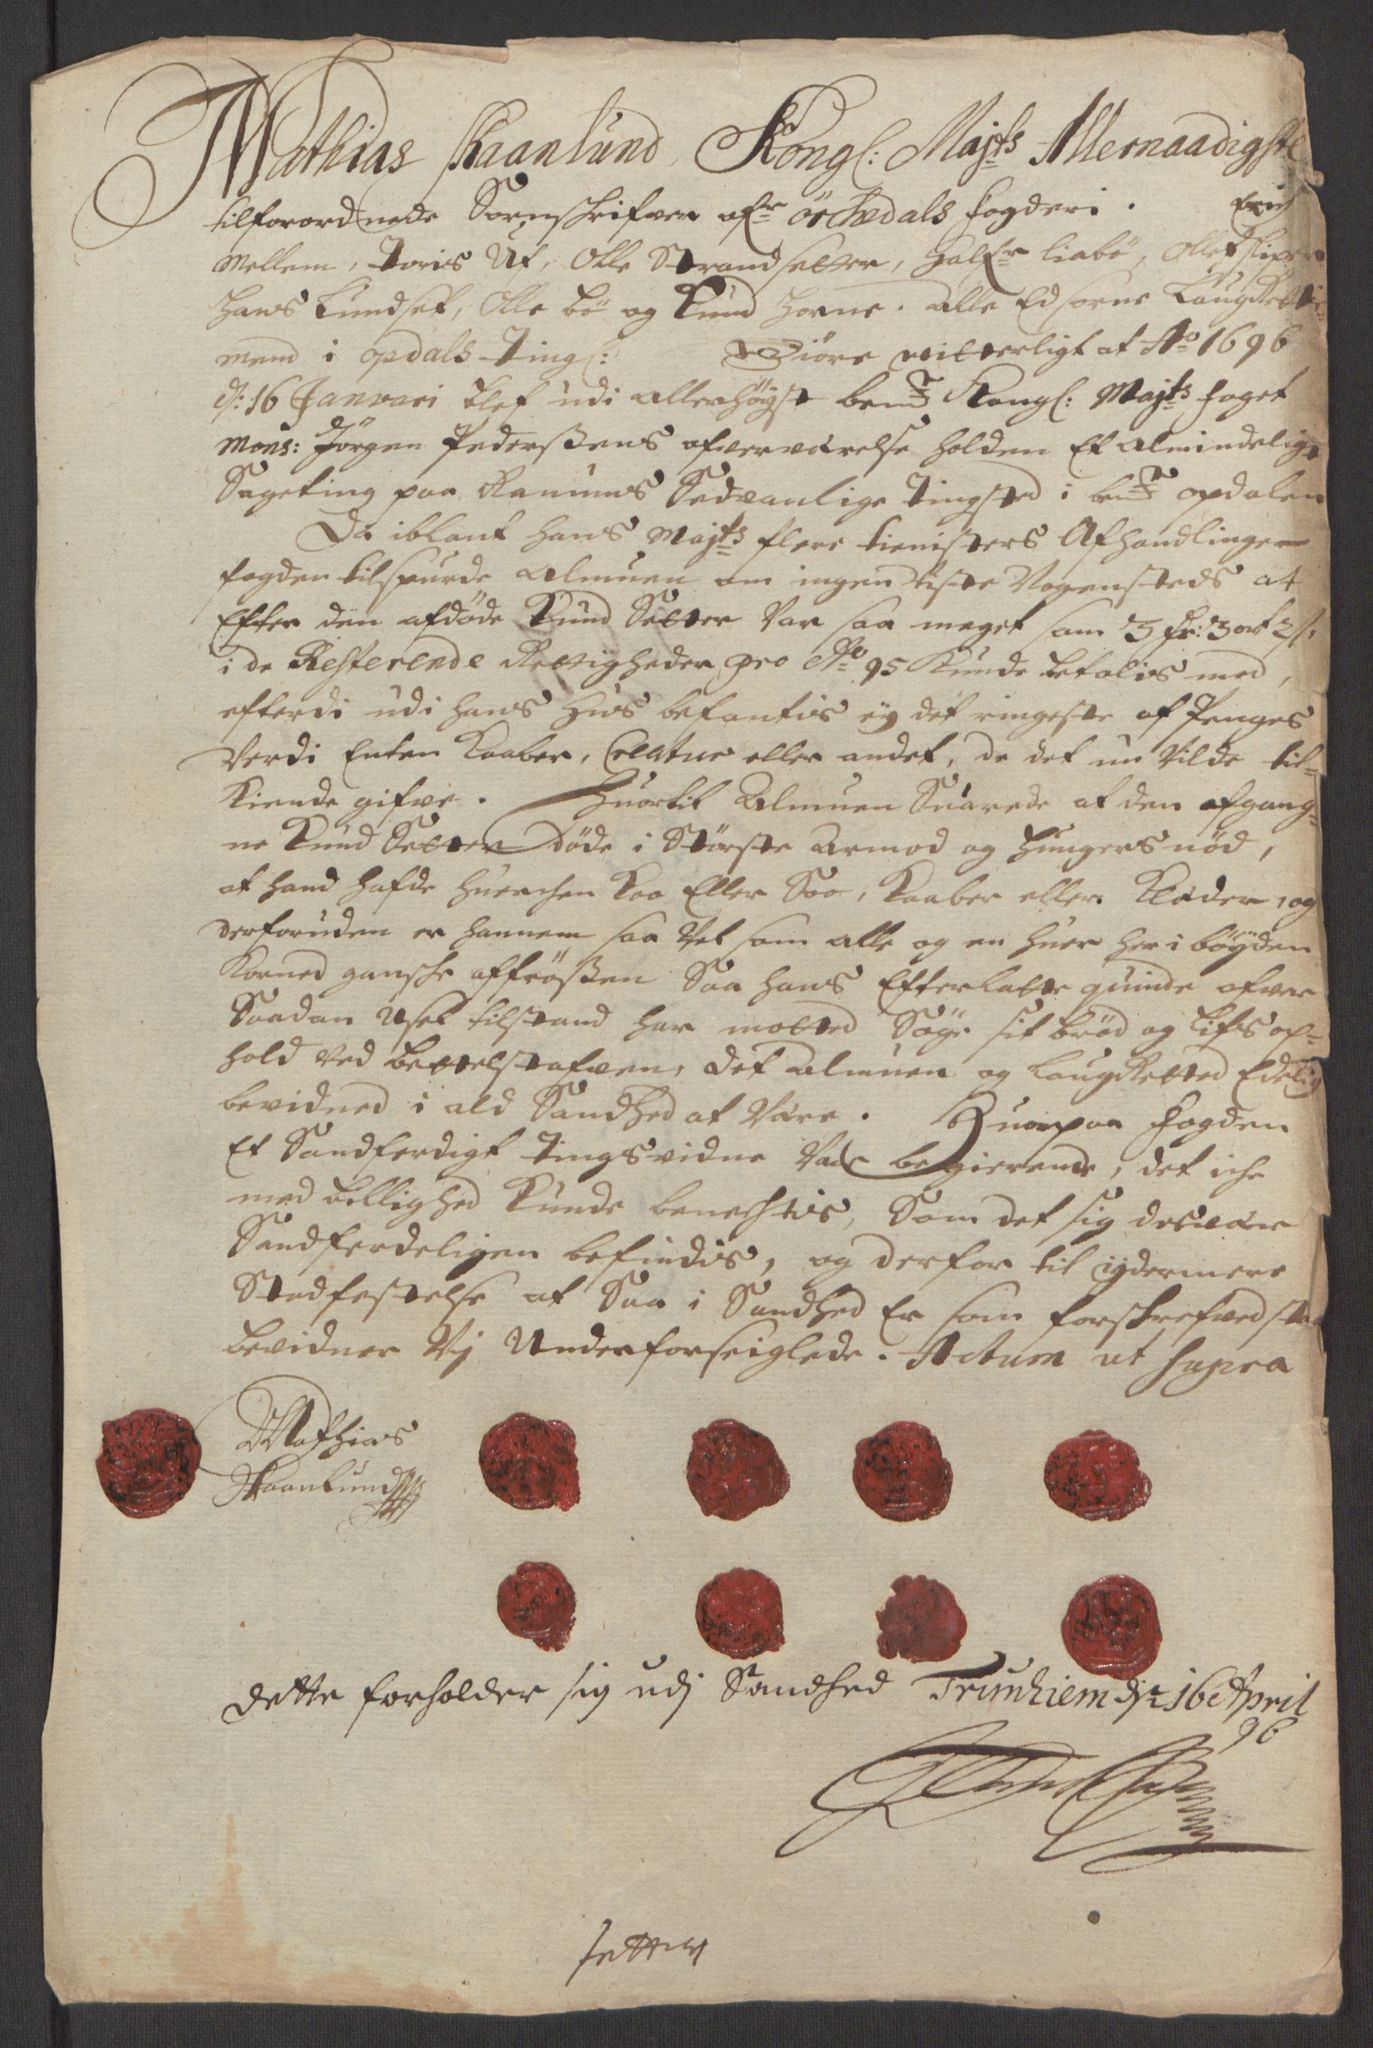 Mathias Skaanlund, Kongl: Majts Allernaadigste
tilforordnede Sorenschrifver ofr örchedals fogderi. Erich
Mellem, Toris Uf, Olle Strandsetter, Halfr Liabö, Ollef
Hans Lundset, Olle bö og Knud Horne. alle Edsorne Laugrettis-
mend i opdals Tingl: Giöre vitterligt at Ao 1696
d: 16 Januari blef udi allerhöyst bemt Kongl: Majts foget
Mons: Jörgen Pederßens ofverværelse holden Et almindeligt
Sageting paa Ranums Sedvanlige Tingsted i bemt opdalen
Da iblant hans Majts flere tienisters Afhandlinger
fogden tilspurde almuen om ingen viste Nogensteds at
Efter den afdöde Knud Setter var saa meget som 3 dr: 3 ort 2 s:
i de Resterende Rettigheder pro Ao 95 kunde betalis med,
efterdi udi hans Huus befantis ey det ringeste af Penges
verdi Enten Kaaber, Creatur eller andet, de det nu vilde til-
kiende gifve. Huortil Almuen Suarede at den afgang-
ne Knud Setter döde i Störste armod og Hungers nöd,
at hand hafde huerchen Koe Eller Soe, Kaaber eller Klæder, og
derforuden er hannem saa vel som alle og en huer her i böyden
Korned gansche affrößen Saa hans Efterlatte quinde ofver
Saadan Usel tilstand har motted Söge sit bröd og lifs op-
hold ved bettelstafven, det almuen og Laugretted Edelig
bevidned i ald Sandhed at være. Huorpaa fogden
Et Sandferdigt Tingsvidne var begierende, det iche
med billighed kunde benechtis, Som det sig desvær
Sandferdeligen befindis, og derfor til ydermere
Stadfestelse at Saa i Sandhed Er som forschrefved
bevidner Vj Underforseiglede. Actum ut supra
Mathias
Skaanlund
dette forholder sig udj Sandhed Trunhiem dr 16 April
96